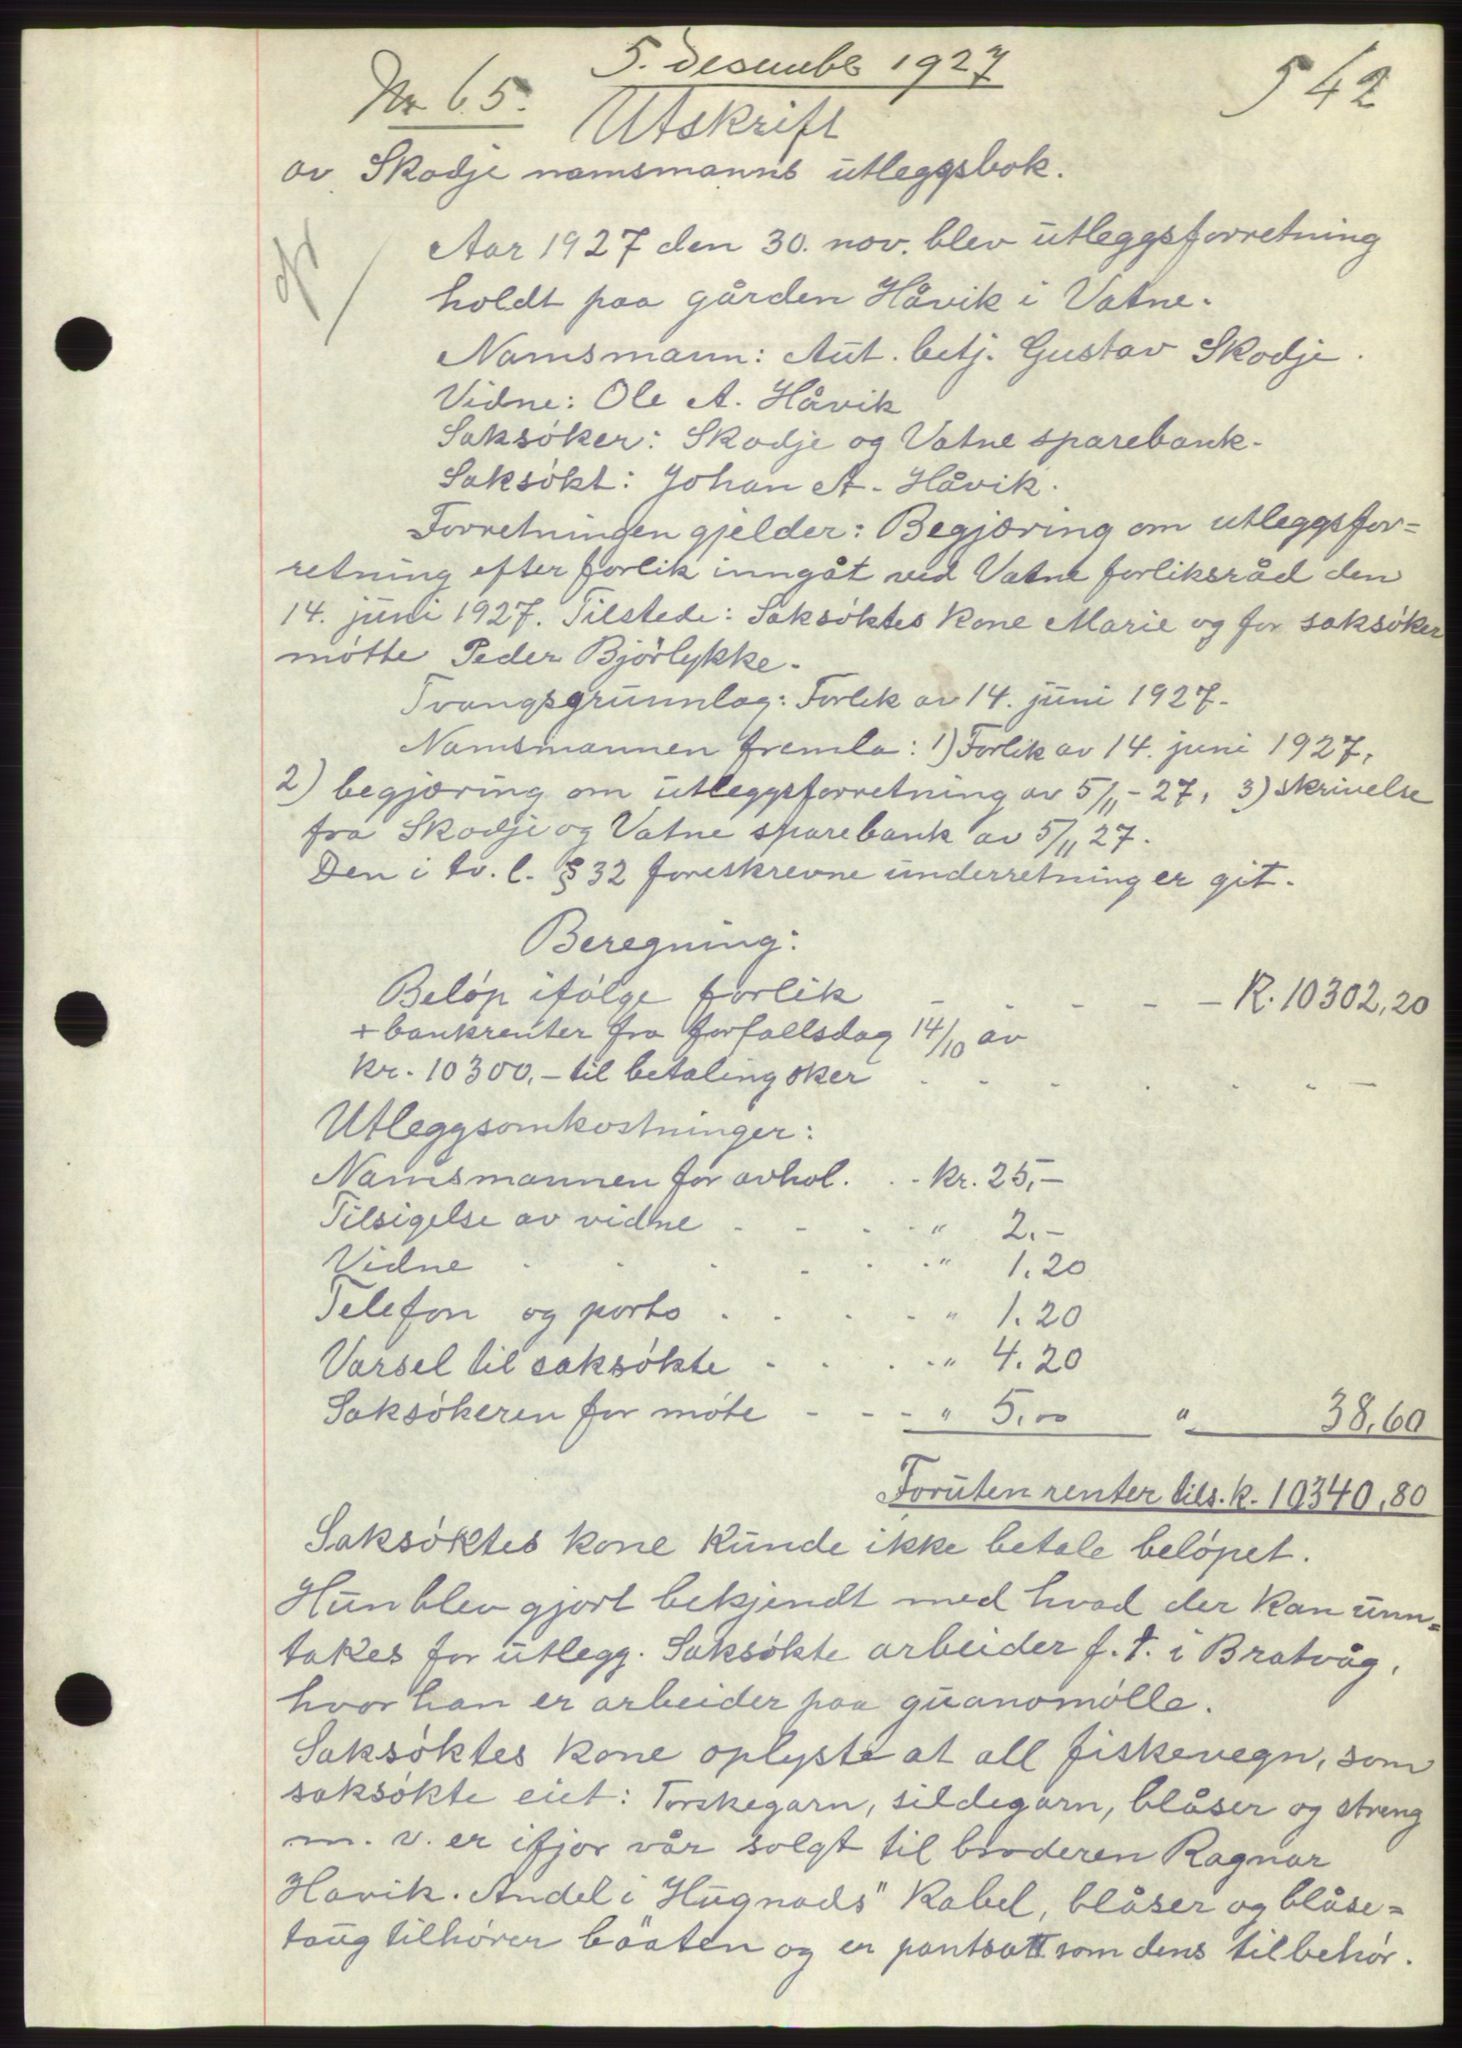 5. desembr 1927
Nr 65.
542
Utskrift
av Skodje namsmanns utleggsbok.
Aar 1927 den 30. nov. blev utleggsforretning
holdt paa gården Håvik i Vatne.
Namsmann: Aut. betj. Gustav Skodje.
Vidne: Ole A. Håvik
Saksöker: Skodje og Vatne sparebank.
Saksökt: Johan A. Håvik.
Forretningen gjelder: Begjæring om utleggsfor=
retning efter forlik inngåt ved Vatne forliksråd den
14. juni 1927. Tilstede: Saksöktes kone Marie og for saksöker
mötte Peder Björlykke.
Tvangsgrunnlag: Forlik av 14. juni 1927.
Namsmannen fremla: 1) Forlik av 14. juni 1927,
2) begjæring om utleggsforretning av 5/11-27, 3) skrivelse
fra Skodje og Vatne sparebank av 5/11 27.
Den i tv. l. § 32 foreskrevne underretning er git.
Beregning:
Belöp ifölge forlik - - - - - K. 10302,20
+ bankrenter fra forfallsdag 14/10 av
kr. 10300,- til betaling sker . . . . . . -
Utleggsomkostninger:
Namsmannen for avhol. . . kr. 25,-
Tilsigelse av vidne . . . . " 2.-
Vidne . . . . . . " 1.20
Telefon og porto . . . . " 1.20
Varsel til saksökte . . . . " 4.20
Saksökeren for möte - - - " 5,00 " 38,60
Foruten renter tils. k. 10340,80
Saksöktes kone kunde ikke betale belöpet.
Hun blev gjort bekjendt med hvad der kan unn=
takes for utlegg. Saksökte arbeider f. t. i Bratvåg,
hvor han er arbeider paa guanomölle.
Saksöktes kone oplyste at all fiskevegn, som
saksökte eiet: Torskegarn, sildegarn, blåser og streng
m. v. er ifjor vår solgt til broderen Ragnar
Havik. Andel i "Hugnads" kabel, blåser og blåse=
taug tilhörer båaten og er pantsatt som dens tilbehör.